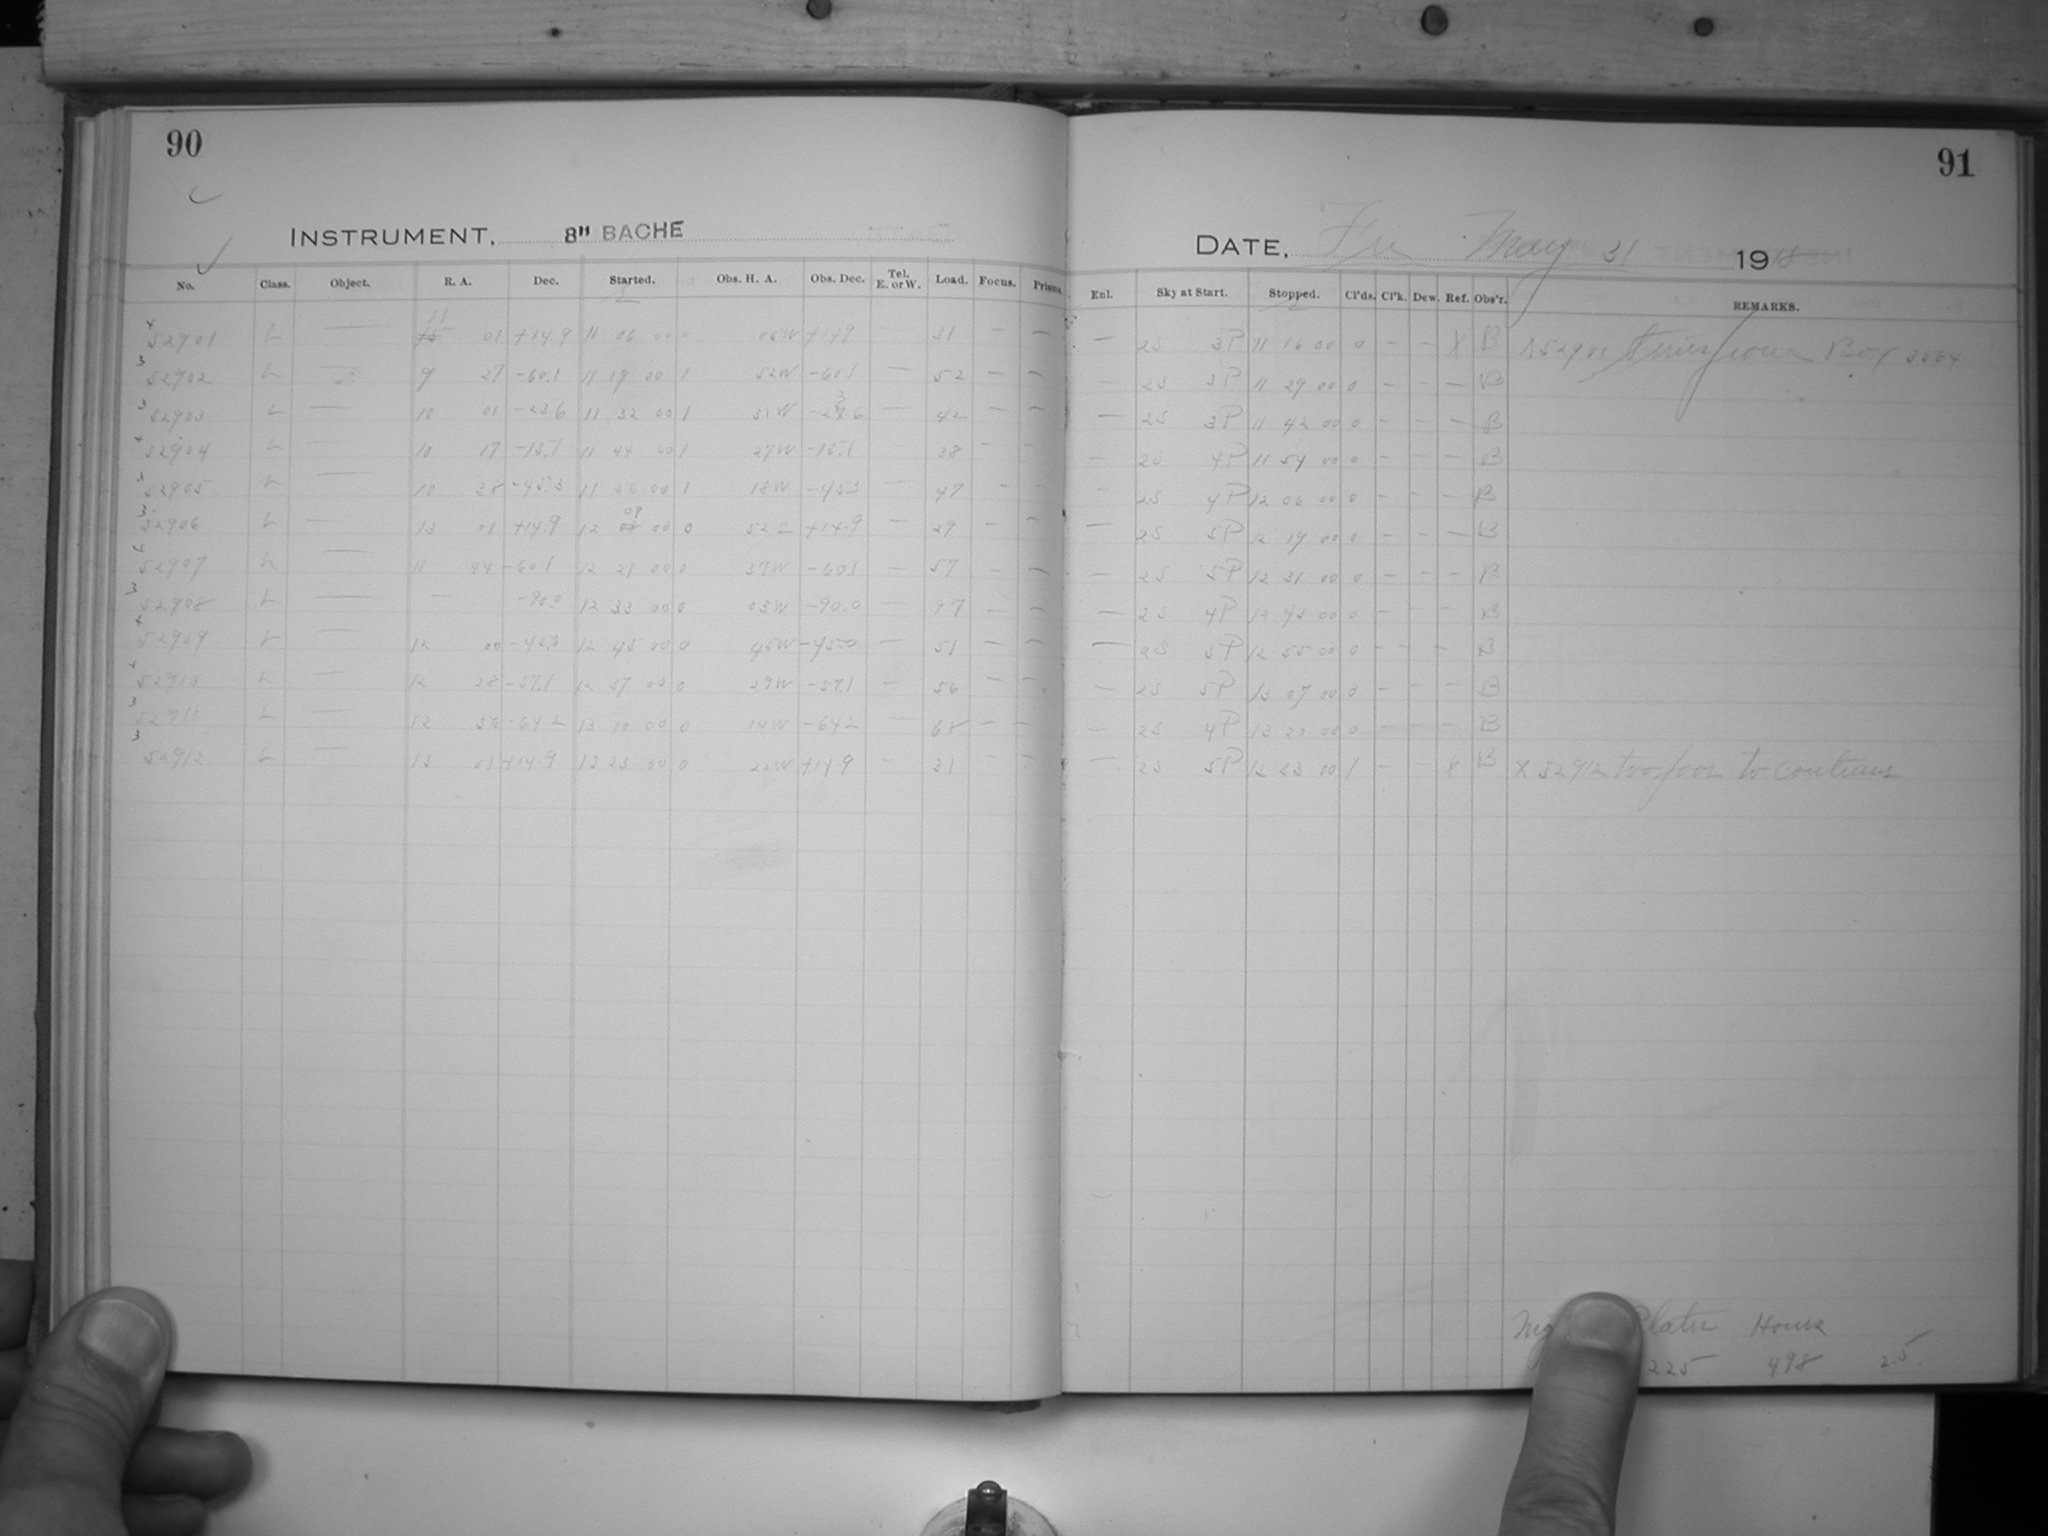 90
INSTRUMENT, 8" BACHE
No. Class. Object. R. A. Dec. Started. Obs. H. A. Obs. Dec. Tel. E. or W. Load. Focus. Prisms.
52901 L — 11 01 +14.9 11 06 00 0 05W +14.9 31 — —
52902 L — 9 27 -60.1 11 19 00 1 52W -60.1 — 52 — —
52903 L — 10 01 11 32 00 1 31W — 42 — —
52904 L — 10 17 -15.1 11 44 00 1 27W -15.1 38 — —
52905 L — 10 38 -45.3 11 56 00 1 18W -45.3 — 47 — —
52906 L — 13 01 +14.9 12 09 00 0 52E +14.9 — 29 — —
52907 L — 11 44 -60.1 12 21 00 0 37W -60.1 — 57 — —
52908 L — — -90.0 12 33 00 0 03W -90.0 — 97 — —
52909 L — 12 00 -45.0 12 45 00 0 45W -45.0 — 51 — —
52910 L — 12 28 -57.1 12 57 00 0 29W -57.1 — 56 — —
52911 L — 12 56 -64.2 13 10 00 0 14W -64.2 — 68 — —
52912 L — 13 01 +14.9 13 23 00 0 22W +14.9 — 31 — —
91
DATE, Fri May 31 1918
Enl. Sky at Start. Stopped. Cl'ds. Cl'k. Dew. Ref. Obs'r. REMARKS.
— 2S 3P 11 16 00 0 — — X B X 52901 Series from Box 3564
— 2S 3P 11 29 00 0 — — — B
— 2S 3P 11 42 00 0 — — — B
— 2S 4P 11 54 00 0 — — — B
— 2S 4P 12 06 00 0 — — — B
— 2S 5P 12 19 00 0 — — — B
— 2S 5P 12 31 00 0 — — — B
— 2S 4P 12 43 00 0 — — — B
— 2S 5P 12 55 00 0 — — — B
— 2S 5P 13 07 00 0 — — — B
— 2S 4P 13 20 00 0 — — — B
— 2S 5P 13 33 00 1 — — X B X 52912 too poor to continue
Plates Hours
225 498 2.5